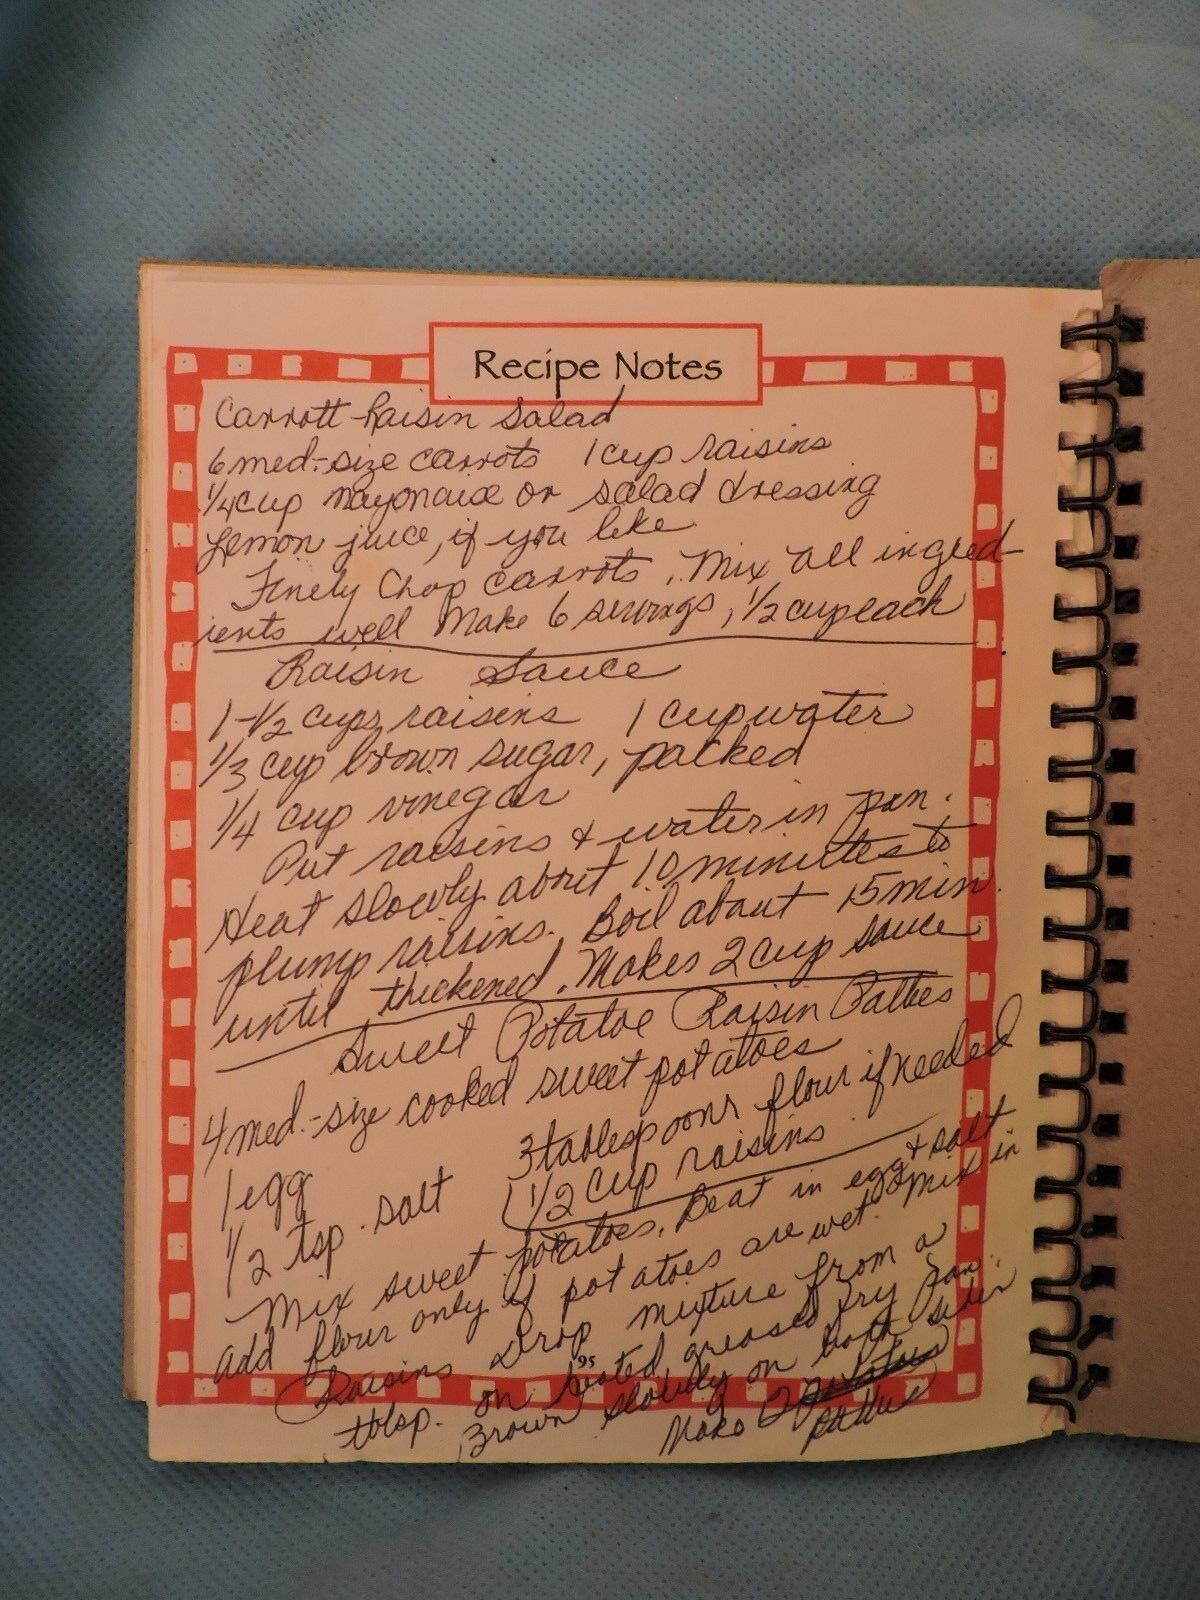 Recipe Notes
Carrott-Raisin Salad
6 med.-size carrots 1 cup raisins
1/4 cup mayonaise or salad dressing
Lemon juice, if you like
Finely Chop carrots. Mix all ingred-
ients well Make 6 servings, 1/2 cup each
Raisin Sauce
1-1/2 cups raisins 1 cup water
1/3 cup brown sugar, packed
1/4 cup vinegar
Put raisins & water in pan.
Heat slowly about 10 minutes to
plump raisins. Boil about 15 min.
until thickened. Makes 2 cup sauce
Sweet Potatoe Raisin Patties
4 med.-size cooked sweet potatoes
1 egg 3 tablespoons flour if needed
1/2 tsp. salt 1/2 cup raisins
Mix sweet potatoes. Beat in egg & salt.
add flour only if potatoes are wet. Mix in
Raisins Drop mixture from a
tblsp. on heated greased fry pan.
Brown slowly on both sides
Make patties
95